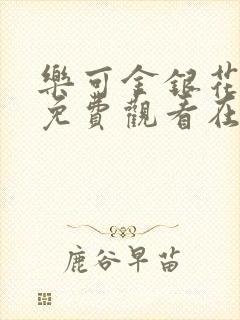 樂可金銀花
免費觀看在
鹿谷早苗